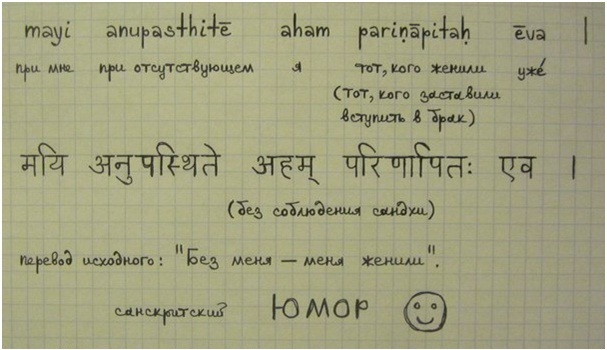 mayi anupasthitē aham pariṇāpitaḥ ēva |
при мне при отсутствующем я тот, кого женили уже́
(тот, кого заставили
вступить в брак)
मयि अनुपस्थिते अहम् परिणापितः एव ।
(без соблюдения сандхи)
перевод исходного: "Без меня — меня женили".
санскритский ЮМОР ☺